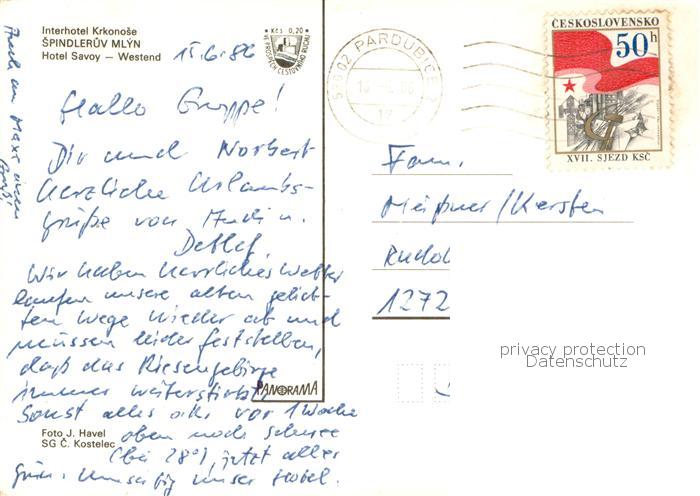 Interhotel Krkonoše
ŠPINDLERŮV MLÝN
Hotel Savoy – Westend
15.6.86
Kčs 0,20
VE PROSPĚCH CESTOVNÍHO RUCHU
Hallo Gruppe!
Dir und Norbert
herzliche Urlaubs-
grüße von Heidi u.
Detlef.
Wir haben herrliches Wetter
laufen unsere alten gelieb-
ten Wege wieder ab und
müssen leider feststellen,
daß das Riesengebirge
immer weiterstirbt.
Sonst alles o.k. vor 1 Woche
oben noch Schnee
(bei 28°), jetzt alles
grün. Umseitig unser Hotel.
Auch an Maxe einen
Gruß!
PANORAMA
Foto J. Havel
SG Č. Kostelec
530 02 PARDUBICE 2
ČESKOSLOVENSKO
50h
XVII. SJEZD KSČ
Fam.
Meißner/Kersten
Rudol
1272
privacy protection
Datenschutz